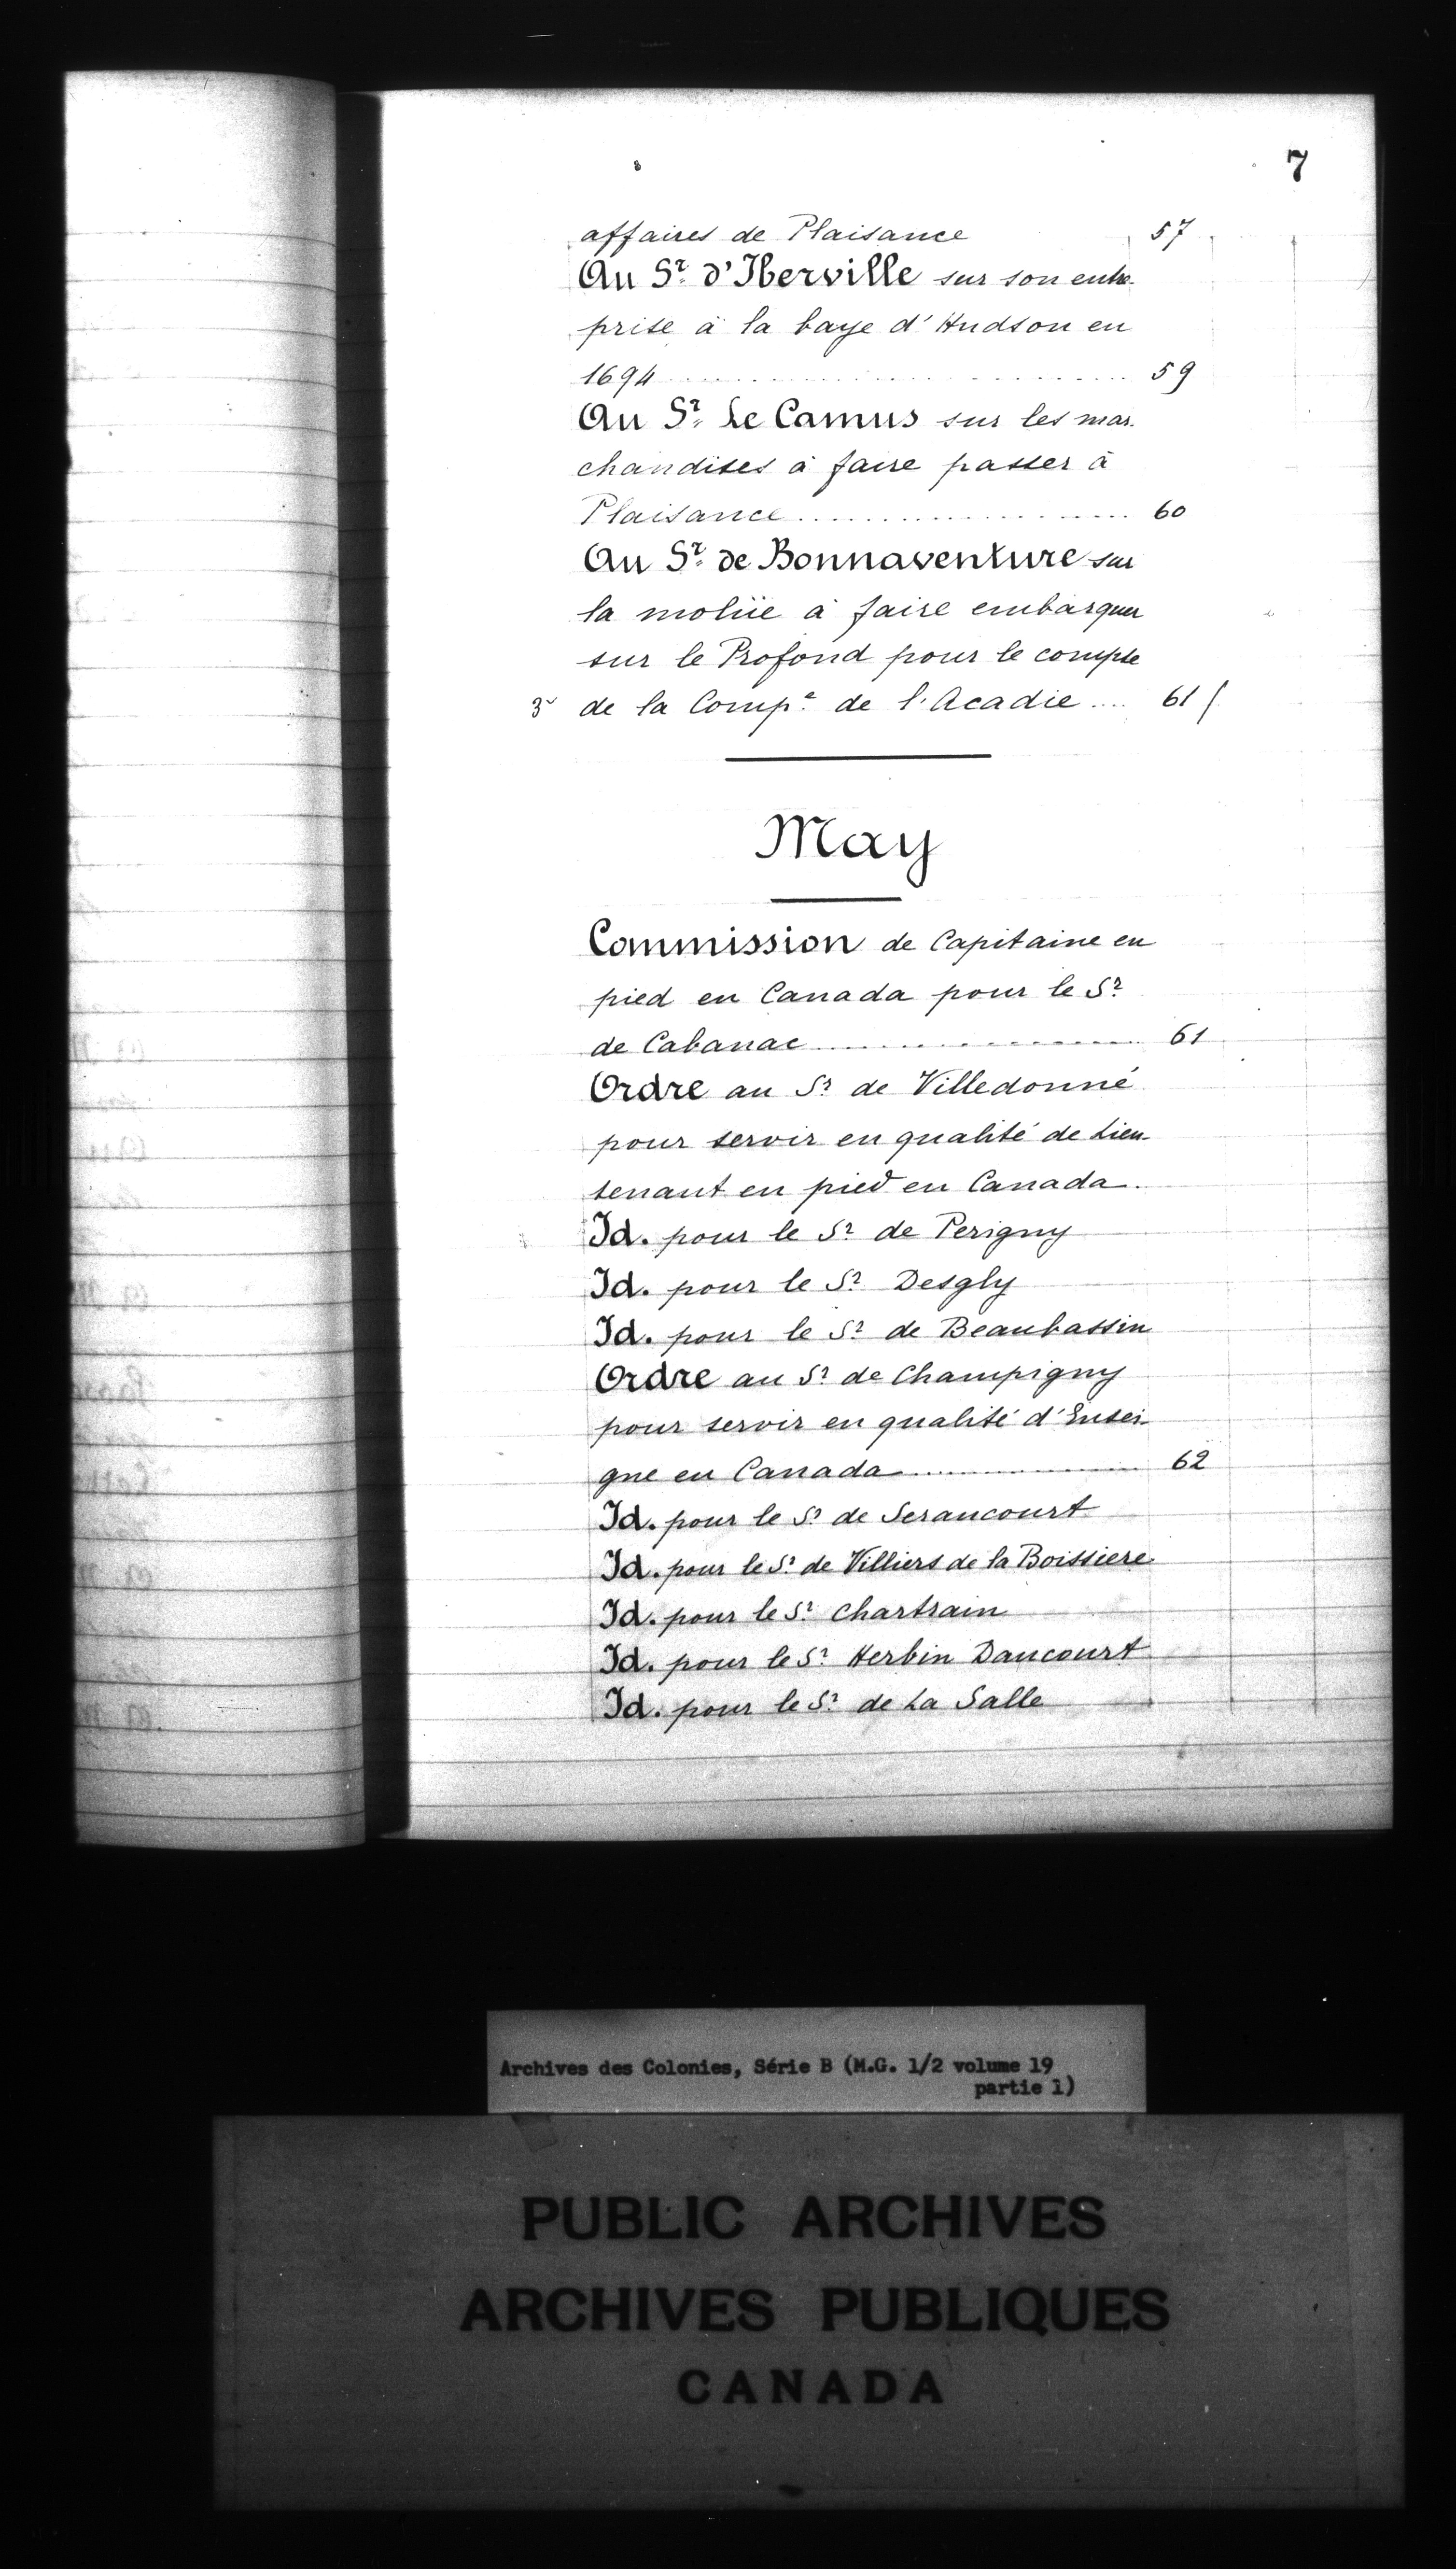 7
affaires de Plaisance 57
Au Sr. d'Iberville sur son entre-
prise à la baye d'Hudson en
1694 .......... 59
Au Sr. Le Camus sur les mar-
chandises à faire passer à
Plaisance .......... 60
Au Sr. de Bonnaventure sur
la molüe à faire embarquer
sur le Profond pour le compte
de la Compe. de l'Acadie .... 61
May
Commission de Capitaine en
pied en Canada pour le Sr.
de Cabanac .......... 61
Ordre au Sr. de Villedonné
pour servir en qualité de Lieu-
tenant en pied en Canada.
Id. pour le Sr. de Perigny
Id. pour le Sr. Desgly
Id. pour le Sr. de Beaubassin
Ordre au Sr. de Champigny
pour servir en qualité d'Ensei-
gne en Canada .......... 62
Id. pour le Sr. de Serancourt
Id. pour le Sr. de Villiers de la Boissiere
Id. pour le Sr. Chartrain
Id. pour le Sr. Herbin Dancourt
Id. pour le Sr. de La Salle
Archives des Colonies, Série B (M.G. 1/2 volume 19
partie 1)
PUBLIC ARCHIVES
ARCHIVES PUBLIQUES
CANADA